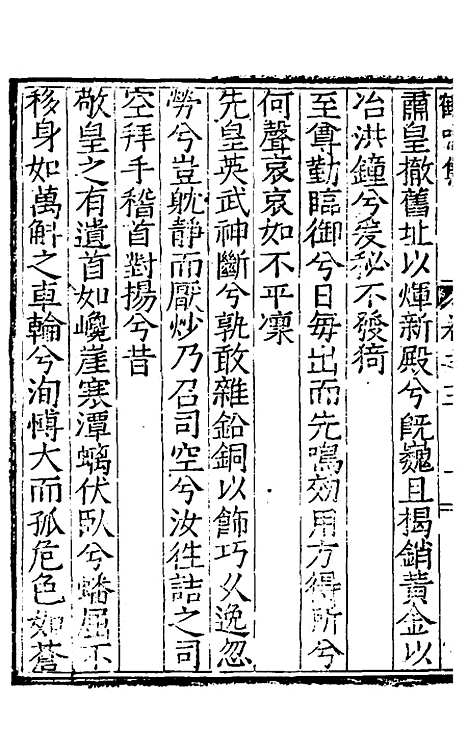 肅皇撤舊址以煇新殿兮旣巍且揭銷黃金以
冶洪鐘兮爰秘不發猗
至尊勤臨御兮日每出而先鳴効用方得所兮
何聲哀哀如不平凜
先皇英武神斷兮孰敢雜鉛銅以飾巧以逸忽
勞兮豈躭靜而厭炒乃召司空兮汝徃詰之司
空拜手稽首對揚兮昔
敬皇之有遺首如巉崖寒潭螭伏臥兮蟠屈不
移身如萬斛之車輪兮洵愽大而孤危色如蒼